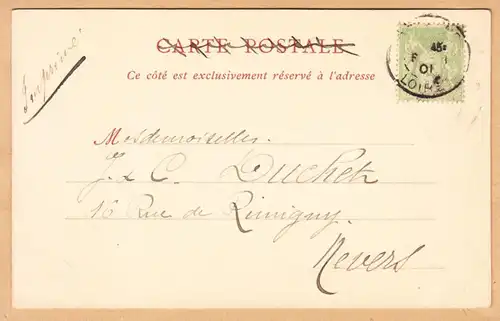 Imprimé
CARTE POSTALE
Ce côté est exclusivement réservé à l'adresse
45E
01
LOIRE
Mesdemoiselles
J. & C. Duchek
16 Rue de Rimigny.
Nevers